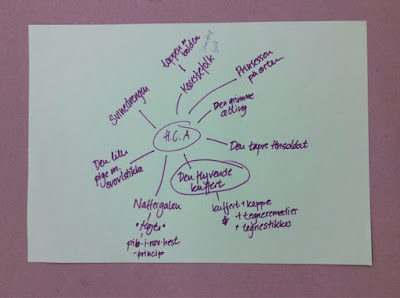 toppen &
bolden
Kærestefolk
Prinsessen
på ærten
Svinedrengen
Den grimme
ælling
H.C.A
Den tapre tinsoldat
Den lille
pige m.
svovlstikke
Den flyvende
kuffert
Nattergalen
kuffert + kappe
+ tegneremedier
+ tegnestikker
pib-i-røv-hest
-princip